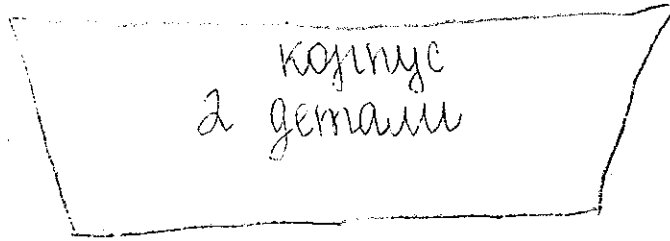 корпус
2 детали